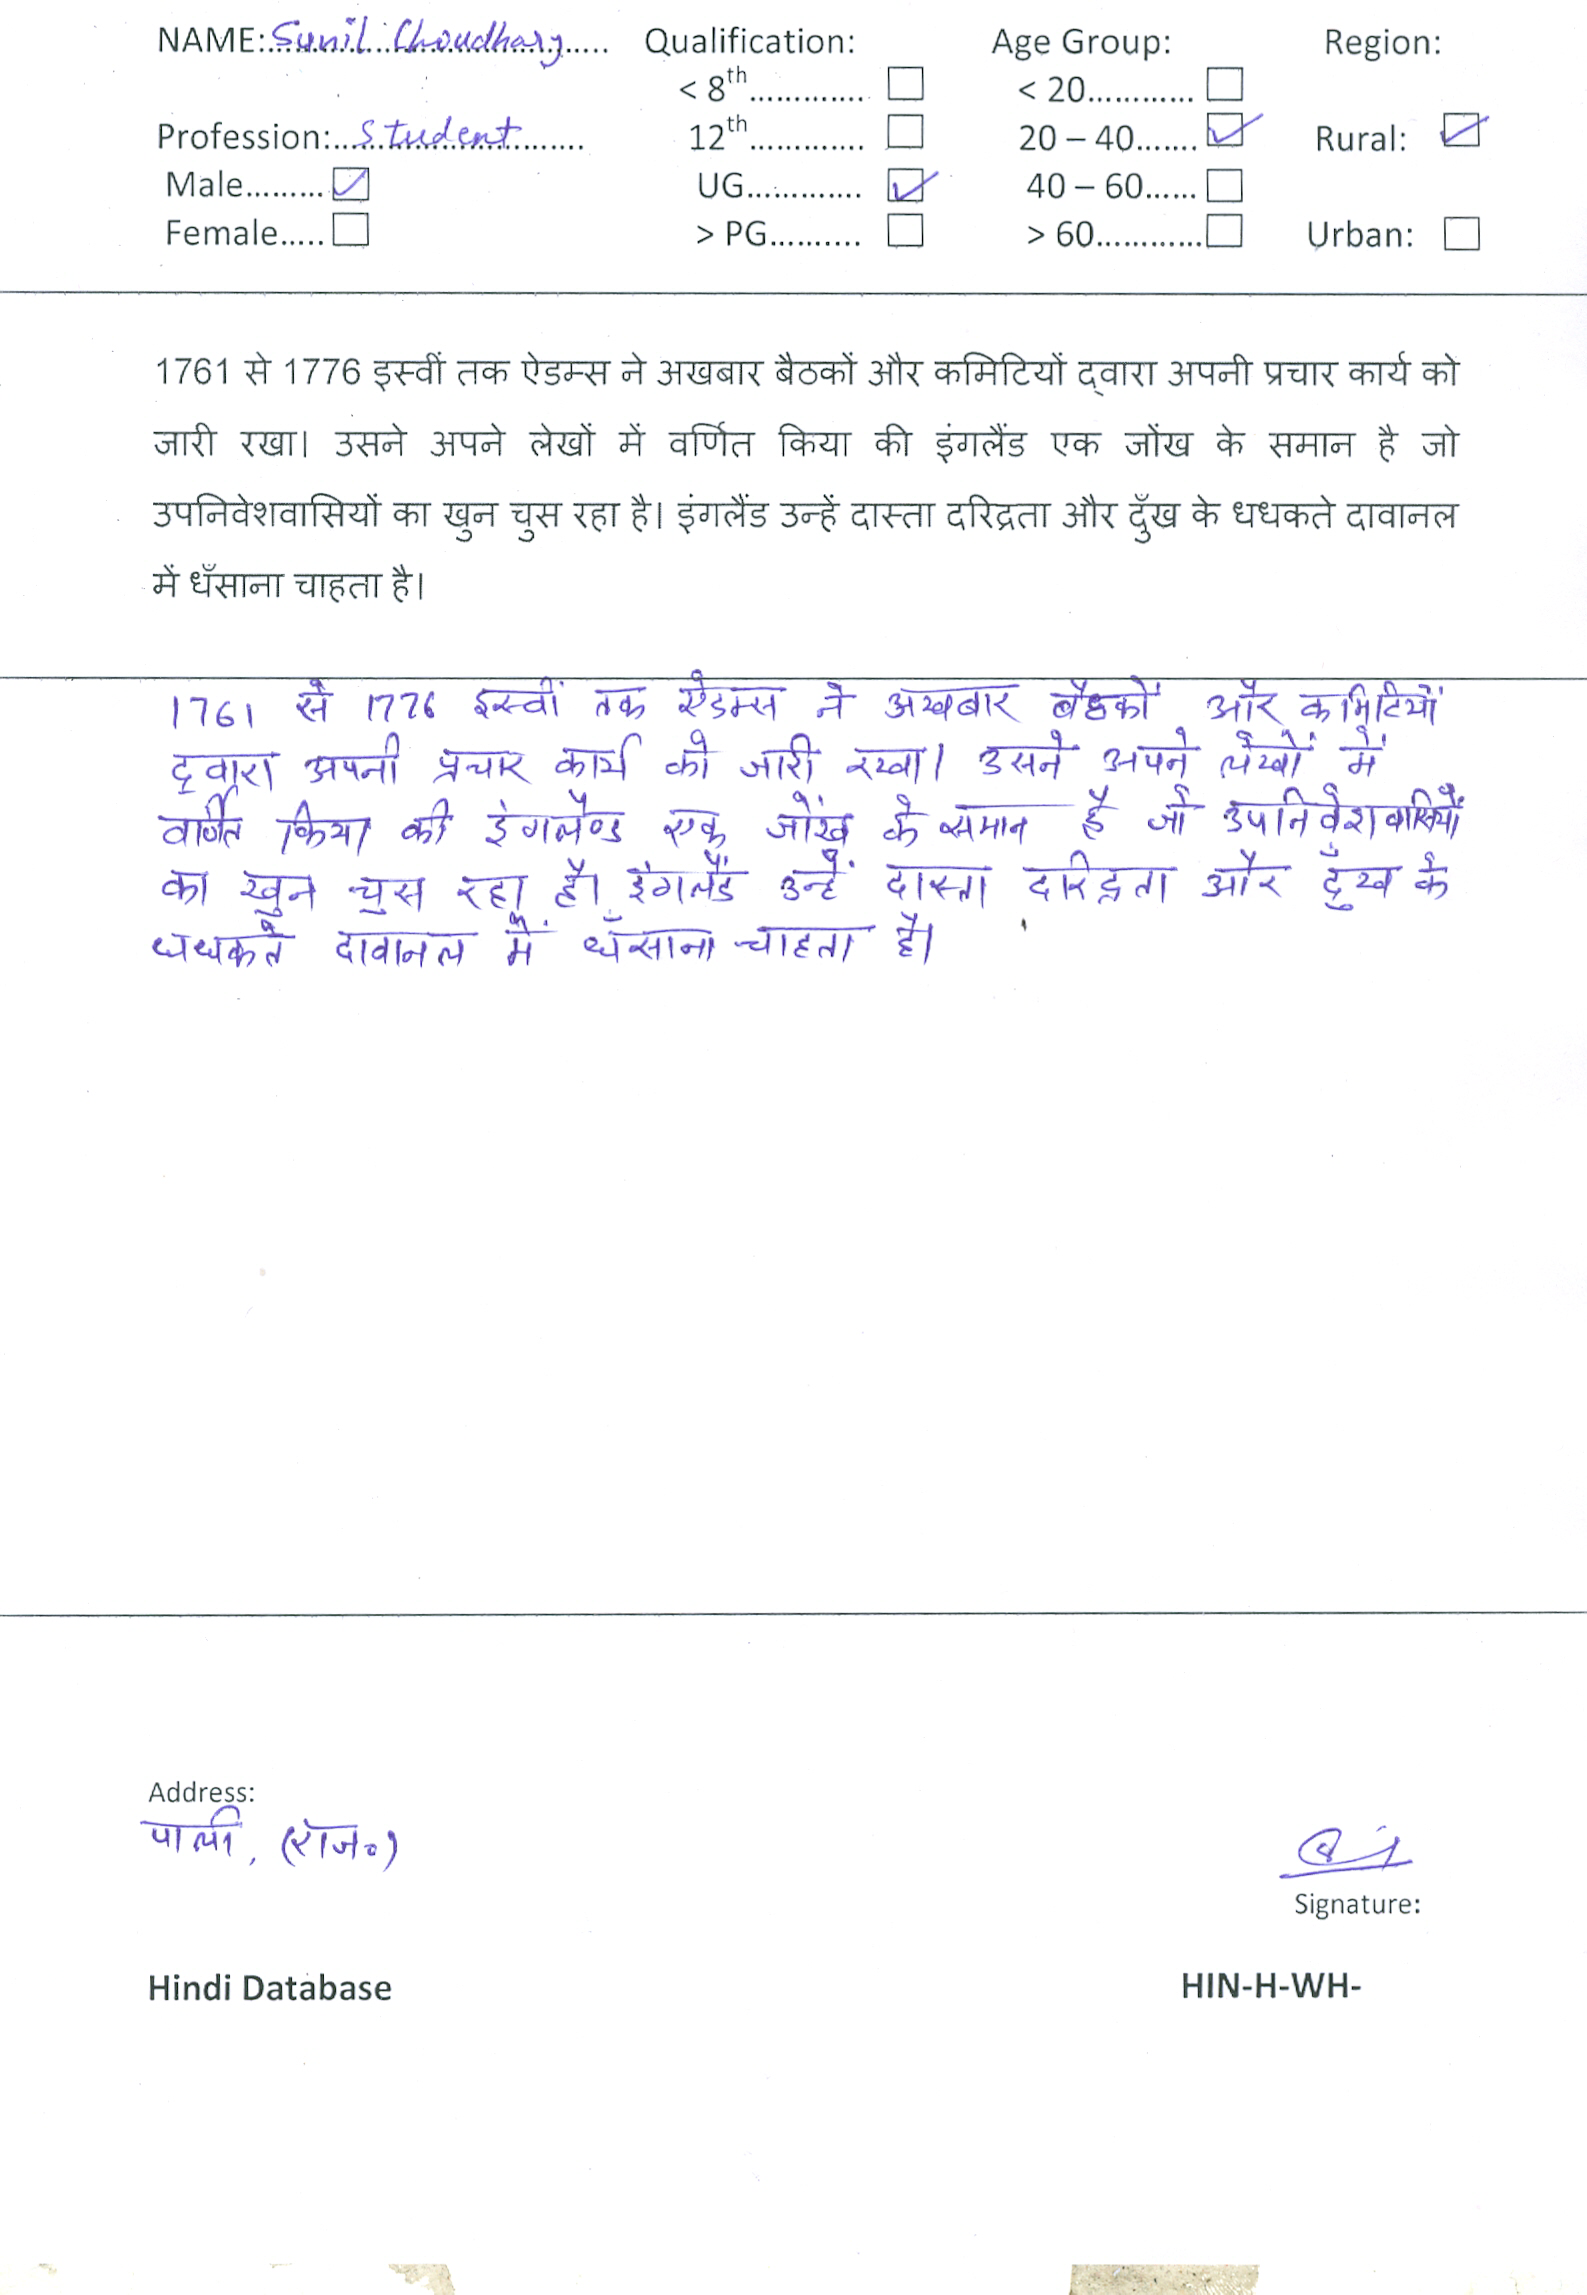 NAME: Sunil Choudhary Qualification: Age Group: Region:
< 8th............. ☐ < 20............ ☐
Profession: Student 12th............. ☐ 20 – 40....... ☑ Rural: ☑
Male......... ☑ UG............. ☑ 40 – 60...... ☐
Female..... ☐ > PG.......... ☐ > 60............ ☐ Urban: ☐
1761 से 1776 इस्वीं तक ऐडम्स ने अखबार बैठकों और कमिटियों द्वारा अपनी प्रचार कार्य को
जारी रखा। उसने अपने लेखों में वर्णित किया की इंगलैंड एक जोंख के समान है जो
उपनिवेशवासियों का खुन चुस रहा है। इंगलैंड उन्हें दास्ता दरिद्रता और दुँख के धधकते दावानल
में धँसाना चाहता है।
1761 से 1776 इस्वीं तक ऐडम्स ने अखबार बैठकों और कमिटियों
द्वारा अपनी प्रचार कार्य को जारी रखा। उसने अपने लेखों में
वर्णित किया की इंगलैण्ड एक जोंख के समान है जो उपनिवेशवासियों
का खुन चुस रहा है। इंगलैंड उन्हें दास्ता दरिद्रता और दुँख के
धधकते दावानल में धँसाना चाहता है।
Address:
पाली, (राज॰)
Signature:
Hindi Database HIN-H-WH-